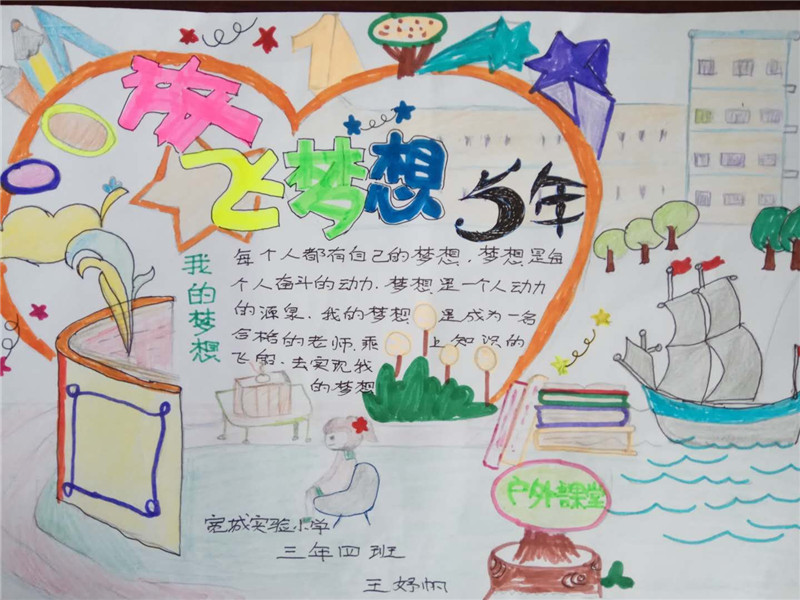 放飞梦想
年
我的梦想
每个人都有自己的梦想，梦想是每
个人奋斗的动力，梦想是一个人动力
的源泉，我的梦想是成为一名
合格的老师，乘上知识的
飞船，去实现我
的梦想
户外课堂
宽城实验小学
三年四班
王妤帆